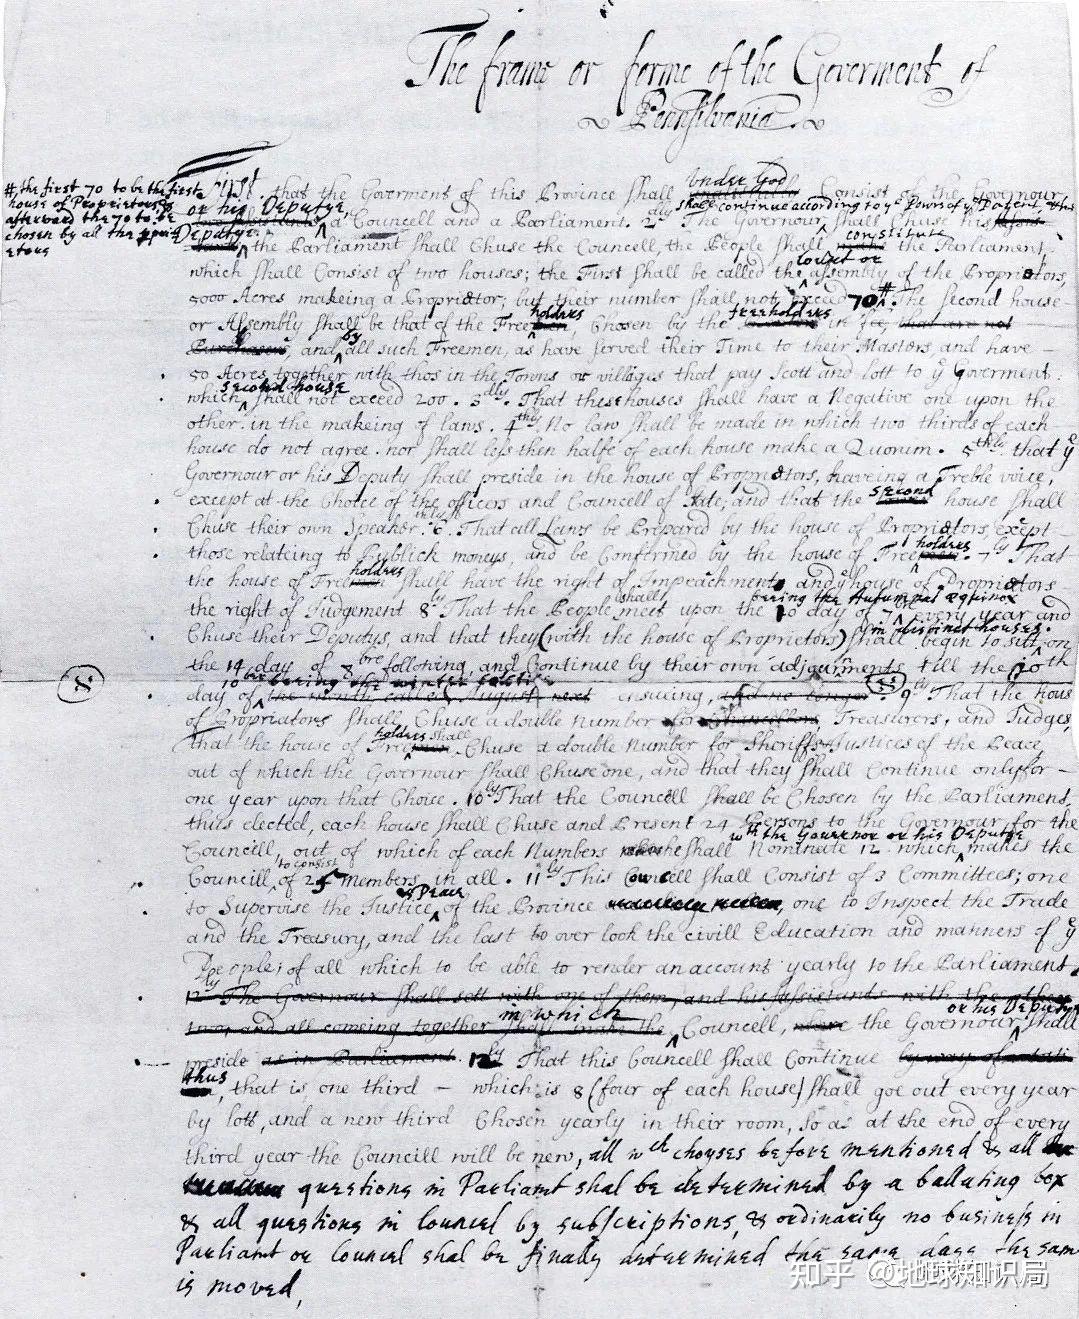 The frame or forme of the Goverment of
Pennsilvania.
# the first 70 to be the first
house of Proprietors &
afterward the 70 to be
chosen by all the
First. that the Goverment of this Province Shall Under God Consist of the Governour
or his Deputye, a Councell and a Parliament. 2dly The Governour shall continue according to ye Powers of ye Patent Shall Chuse his
Deputye. the Parliament Shall Chuse the Councell, the People Shall constitute the Parliament,
which Shall Consist of two houses; the First Shall be called the assembly of the Proprietors,
5000 Acres makeing a Proprietor; but their number Shall not exceed 70 # The Second house
or Assembly Shall be that of the Freeholders, Chosen by the freeholders in fee, that are not
and by all such Freemen, as have Served their Time to their Masters, and have
50 Acres, together with thos in the Towns or villages that pay Scott and lott to ye Goverment.
which second house Shall not exceed 200. 3dly That these houses Shall have a Negative one upon the
other in the makeing of laws. 4thly No law Shall be made in which two thirds of each
house do not agree. nor Shall less then halfe of each house make a Quorum. 5thly that ye
Governour or his Deputy Shall preside in the house of Proprietors, haveing a Treble voice,
except at the Choice of the officers and Councell of State, and that the second house Shall
Chuse their own Speaker. 6thly That all Laws be Prepared by the house of Proprietors, exept
those relateing to Publick moneys, and be Confirmed by the house of Freeholders. 7ly That
the house of Freeholders Shall have the right of Impeachment, and ye house of Proprietors
the right of Judgement 8ly That the People shall meet upon the 10 day of 7 being the Autumnal Equinox every year and
Chuse their Deputys, and that they (with the house of Proprietors) Shall in distinct houses begin to sitt on
the 14 day of 8bre following and Continue by their own adjournments till the 10th
day of 10 being the winter the month called August next ensuing, and no longer 9ly That the hous
of Propriators Shall Chuse a double number for Treasurers, and Judges,
that the house of Freeholders shall Chuse a double Number for Sheriffs & Justices of the Peace
out of which the Governour Shall Chuse one, and that they Shall Continue only for
one year upon that Choice. 10ly That the Councell Shall be Chosen by the Parliament,
thus elected, each house Shall Chuse and Present 24 Persons to the Governour for the
Councill, out of which of each Numbers he Shall Nominate 12. which wth the Governor or his Deputye makes the
Councill to consist of 25 Members in all. 11ly This Councell Shall Consist of 3 Committees; one
to Supervise the Justice & Peace of the Province, one to Inspect the Trade
and the Treasury, and the last to over look the civill Education and manners of ye
People; of all which to be able to render an account yearly to the Parliament
12ly The Governour Shall sett with one of them, and his Assistants with the other
two, and all comeing together Shall make the in which Councell, where the Governour or his Deputye Shall
preside as in Parliament. 12ly That this Councell Shall Continue by way of
thus, that is, one third – which is 8 (four of each house) Shall goe out every year
by lott, and a new third Chosen yearly in their room, So as at the end of every
third year the Councill will be new, all wch choyses before mentioned & all
questions in Parliamt shal be determined by a ballating box
& all questions in Councel by subscriptions, & ordinarily no business in
Parliamt or Councel shal be finally determined the same daye the sam
is moved,
知乎 @地球知识局